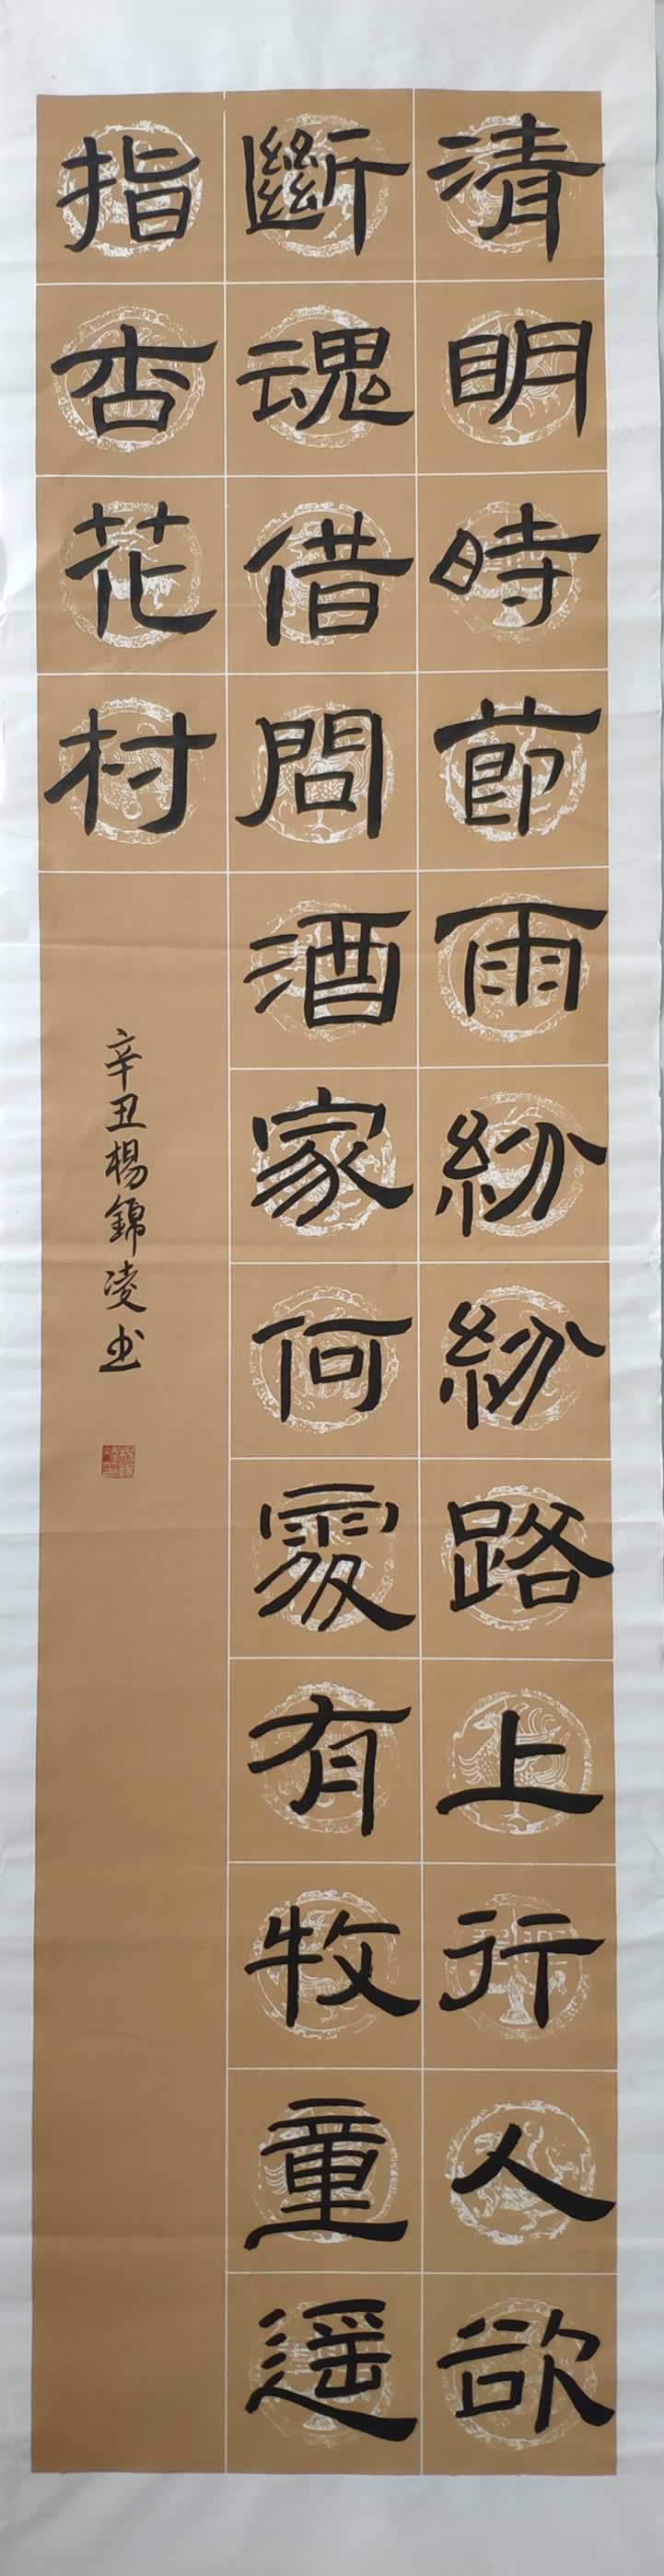 清明時節雨紛紛路上行人欲
斷魂借問酒家何處有牧童遥
指杏花村
辛丑楊錦凌书